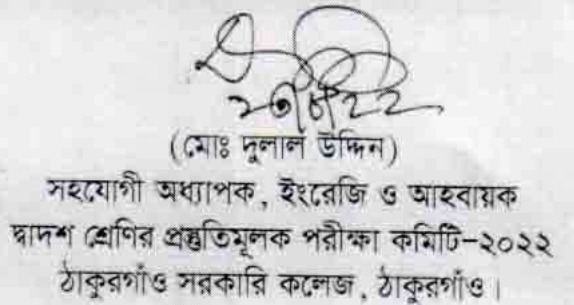 (মোঃ দুলাল উদ্দিন)
সহযোগী অধ্যাপক, ইংরেজি ও আহবায়ক
দ্বাদশ শ্রেণির প্রস্তুতিমূলক পরীক্ষা কমিটি-২০২২
ঠাকুরগাঁও সরকারি কলেজ, ঠাকুরগাঁও।